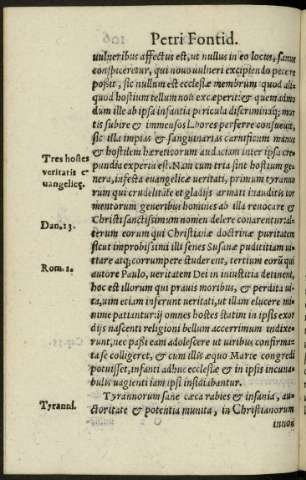 Petri Fontid.
vulneribus affectus est, ut nullus in eo locus, sanus
conspiceretur, qui novo vulneri excipiendo
possit, sic nullum est ecclesiæ membrum quod
quod hostium tellum non exceperit: &
dum ille ab ipsa infantia pericula
tis subire & immensos labores perferre consuevit,
sic illa impias & sanguinarias carnificum manus
& hostilem hæreticorum audaciam inter ipsa cre
pundia experta est. Nam cum tria sint hostium ge
Tres hostes
veritatis e
uangelicę.
nera, infesta evangelicæ veritati, primum tyranno
rum qui crudelitate et gladijs armati inauditis tor
mentorum generibus homines ab illa revocare &
Christi sanctissimum nomen delere conarentur: al
Dan. 13.
terum eorum qui Christianæ doctrinæ puritatem
sicut improbissimi illi senes Susanæ pudititiam vi
tiare atq; corrumpere studerent, tertium eorū qui
Rom. 1.
autore Paulo, veritatem Dei in iniustitia detinent,
hoc est illorum qui pravis moribus, & perdita vi
ta, vim etiam inferunt veritati, ut illam elucere mi
nime patiantur: ij omnes hostes statim in ipsis exor
dijs nascenti religioni bellum accerrimum indixe-
runt, nec passi eam adolescere ut viribus confirma-
ta se colligeret, & cum illis æquo Marte congredi
potuisset, infanti adhuc ecclesiæ & in ipsis incuna
bulis vagienti iam ipsi insidiabantur.
Tyranni.
Tyrannorum sane cæca rabies & insania, au-
ctoritate & potentia munita, in Christianorum